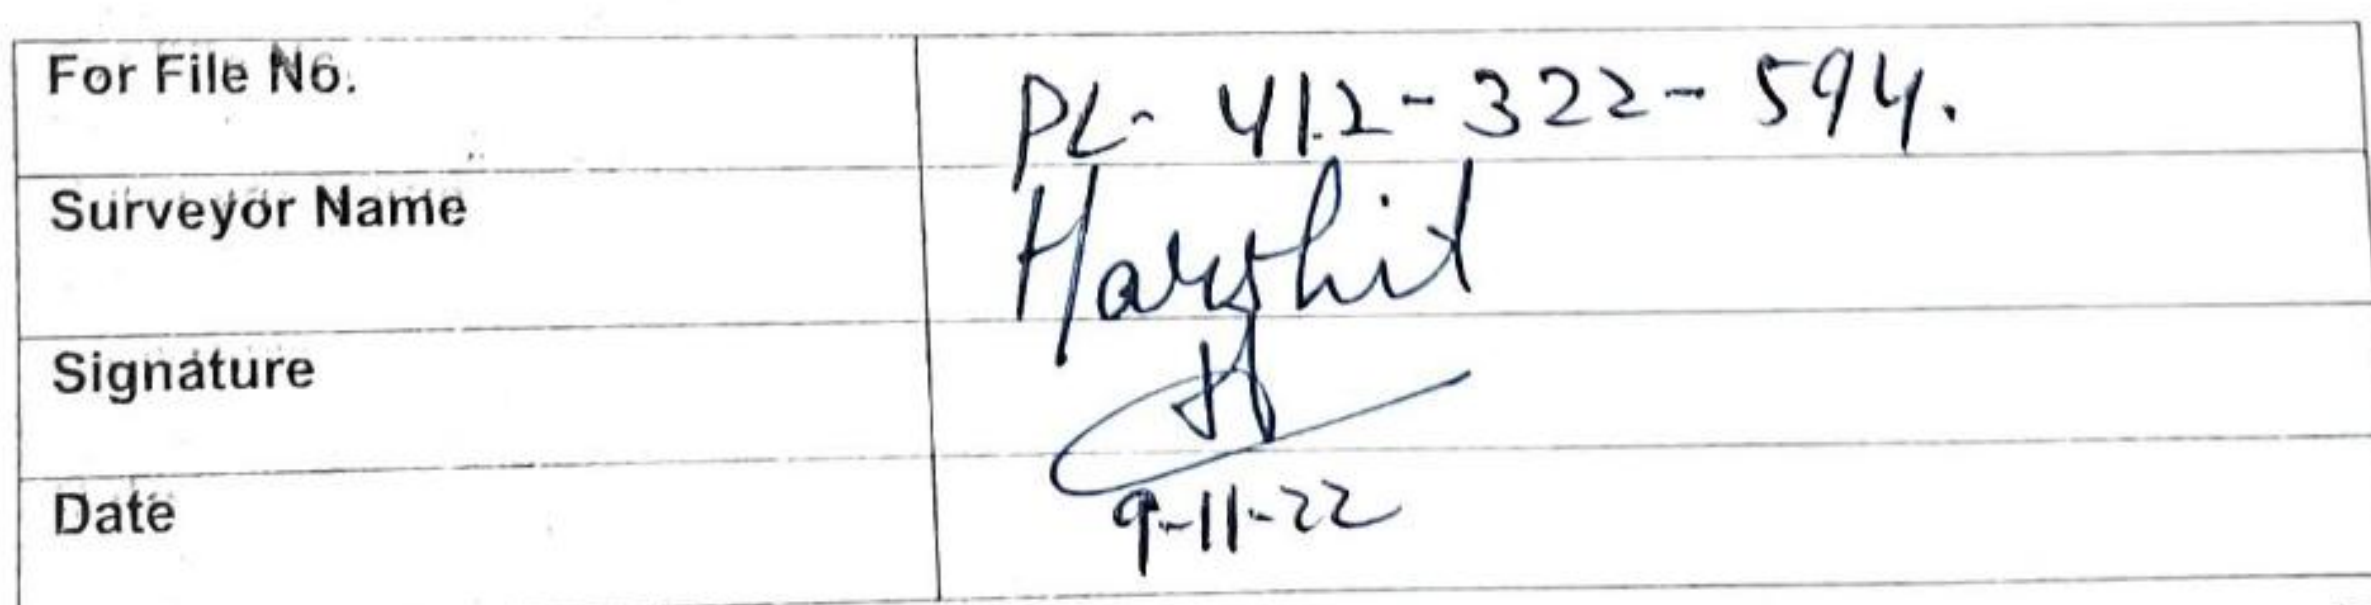 For File No. PL- 412-322-594.
Surveyor Name Harshit
Signature
Date 9-11-22